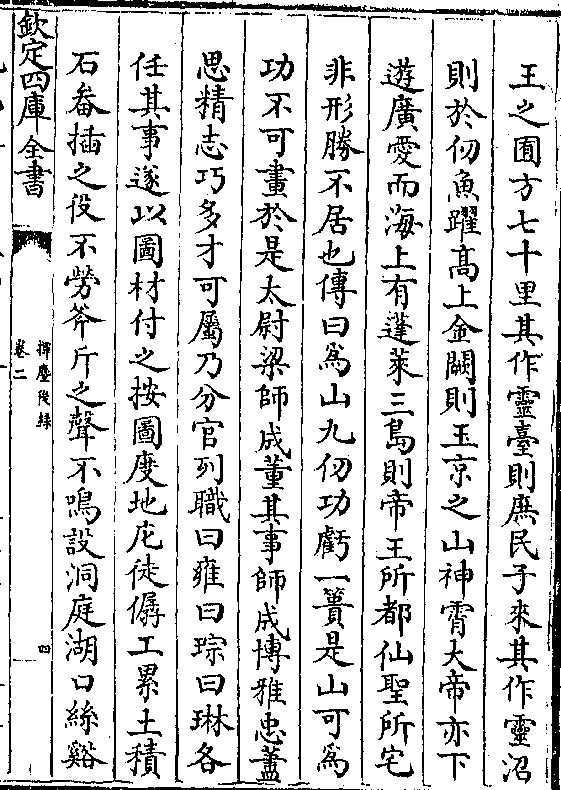 王之囿方七十里其作靈臺則庶民子來其作靈沼
則於仞魚躍髙上金闕則玉京之山神霄大帝亦下
遊廣愛而海上有蓬萊三島則帝王所都仙聖所宅
非形勝不居也傳曰爲山九仞功虧一簣是山可爲
功不可畫於是太尉梁師成董其事師成博雅忠藎
思精志巧多才可屬乃分官列職曰雍曰琮曰琳各
任其事遂以圖材付之按圖度地庀徒僝工累土積
石畚插之役不勞斧斤之聲不鳴設洞庭湖口絲谿
欽定四庫全書
揮麈後録
卷二
四